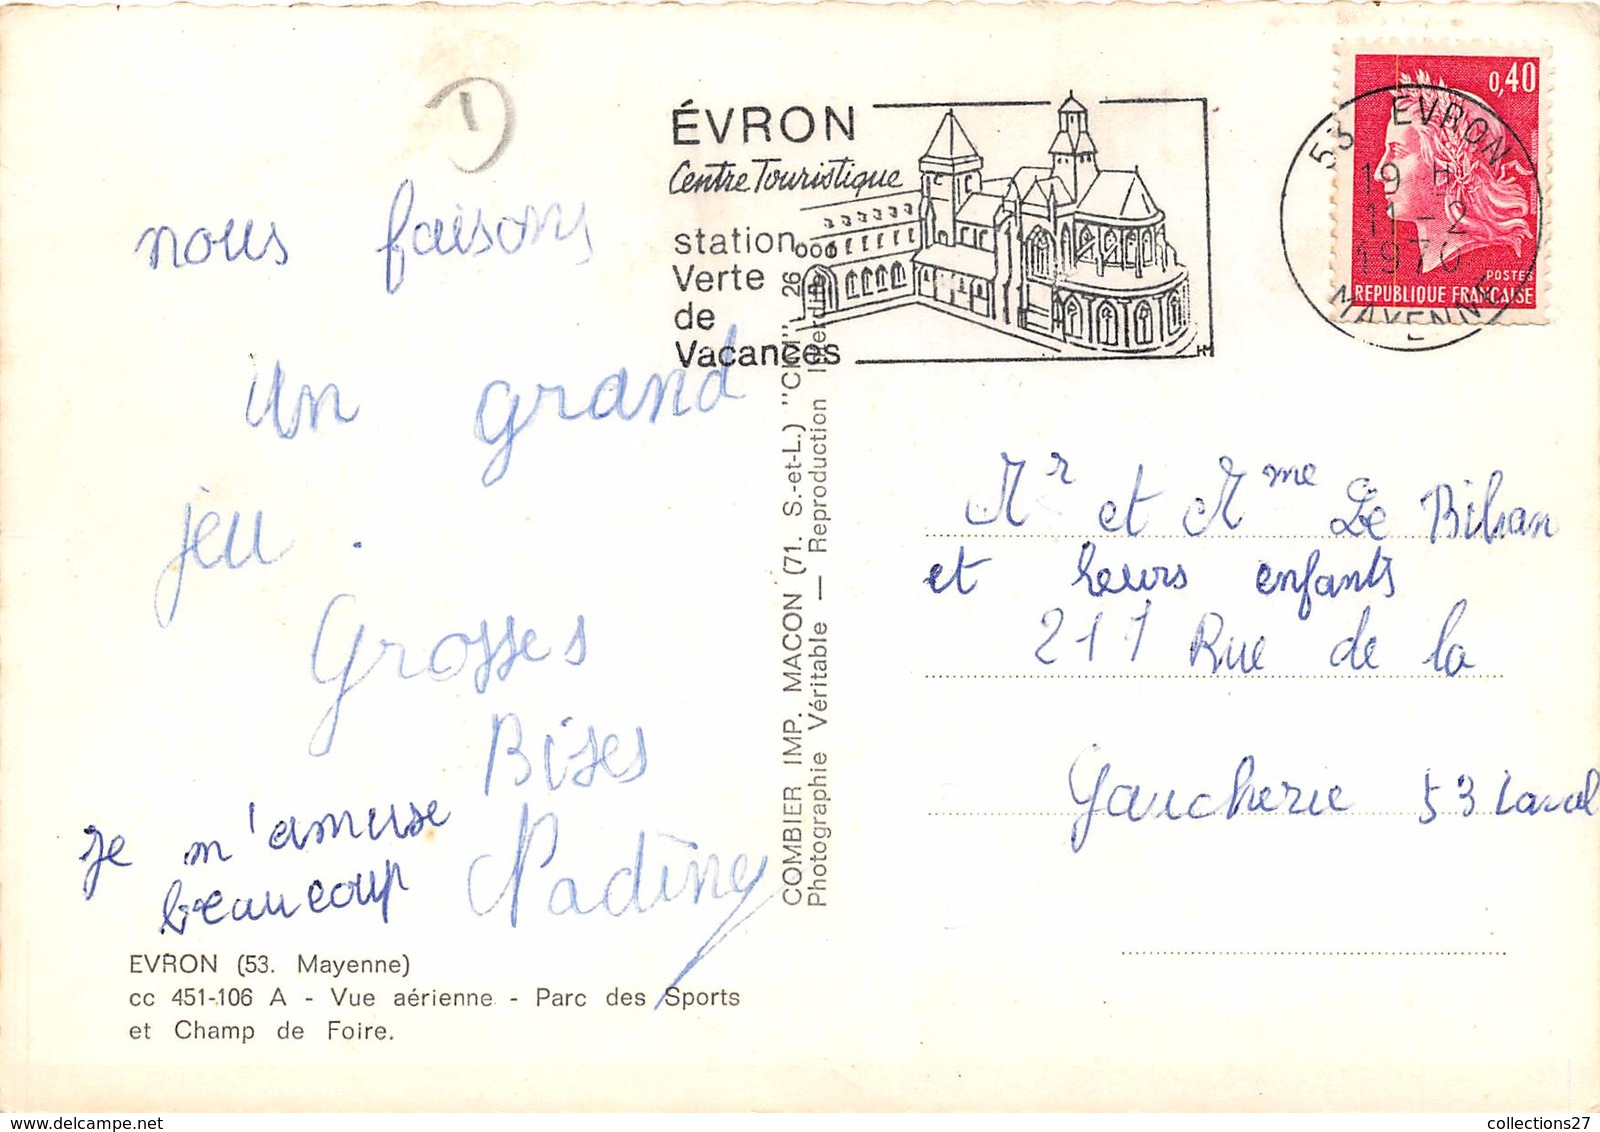 nous faisons
un grand
jeu.
Grosses
Bises
Nadine
je m'amuse
beaucoup
EVRON (53. Mayenne)
cc 451-106 A - Vue aérienne - Parc des Sports
et Champ de Foire.
ÉVRON
Centre Touristique
station
Verte
de
Vacances
HM
COMBIER IMP. MACON (71. S.-et-L.) "CIM" 26
Photographie Véritable — Reproduction Interdite
0,40
POSTES
REPUBLIQUE FRANÇAISE
53 EVRON
19 H
11-2
1970
MAYENNE
Mr et Mme Le Bihan
et leurs enfants
211 Rue de la
Gaucherie 53 Laval
collections27